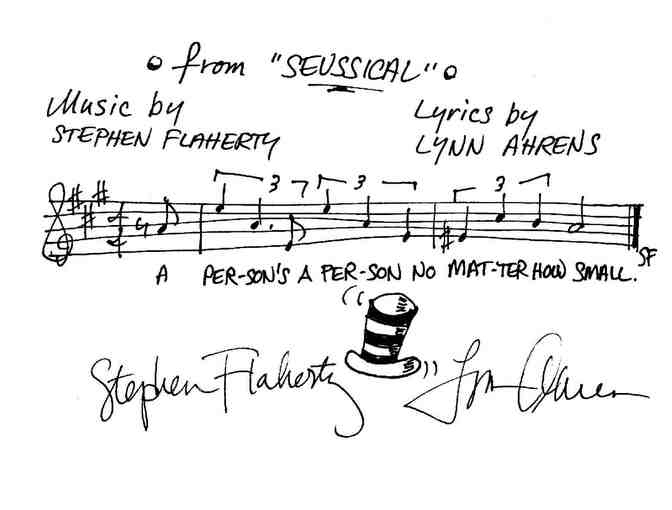 from "SEUSSICAL"
Music by
STEPHEN FLAHERTY
Lyrics by
LYNN AHRENS
3 3 3
A PER-SON'S A PER-SON NO MAT-TER HOW SMALL.
SF
Stephen Flaherty
Lynn Ahrens